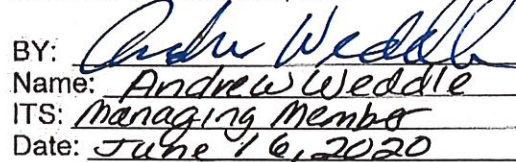 BY: Andrew Weddle
Name: Andrew Weddle
ITS: Managing Member
Date: June 16, 2020